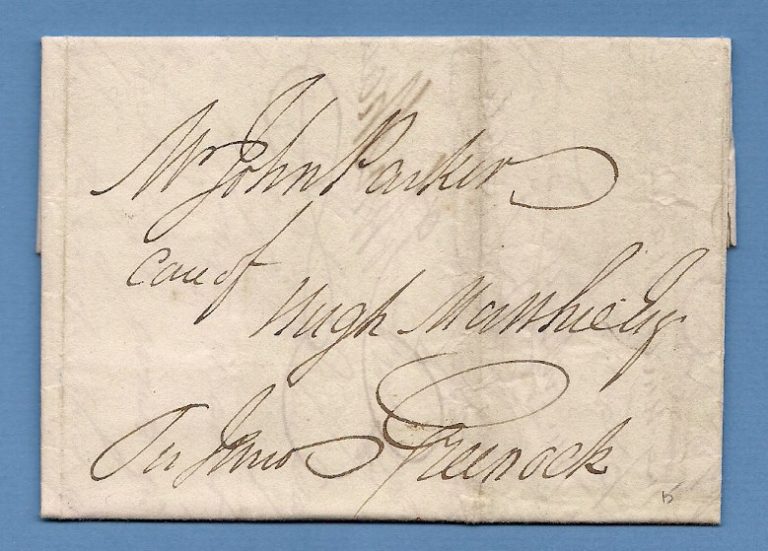 Mr John Parker
care of
Hugh Mathie Esqr
Per Juno Greenock